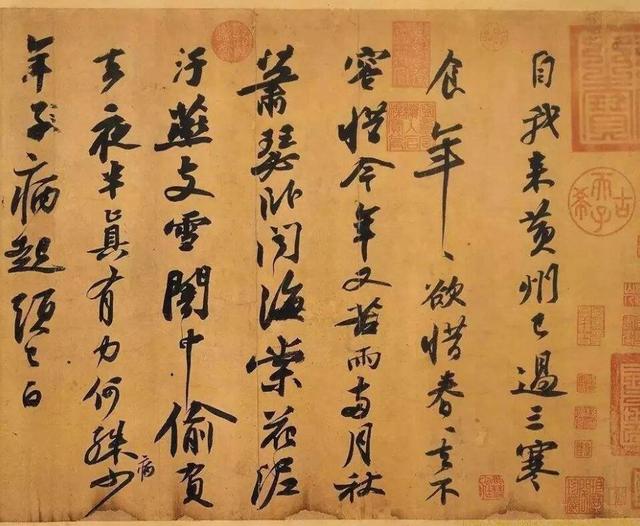 自我來黃州已過三寒
食年〻欲惜春〻去不
容惜今年又苦雨兩月秋
蕭瑟臥聞海棠花泥
汙燕支雪闇中偷負
去夜半真有力何殊少
病
年子病起頭已白
古希天子